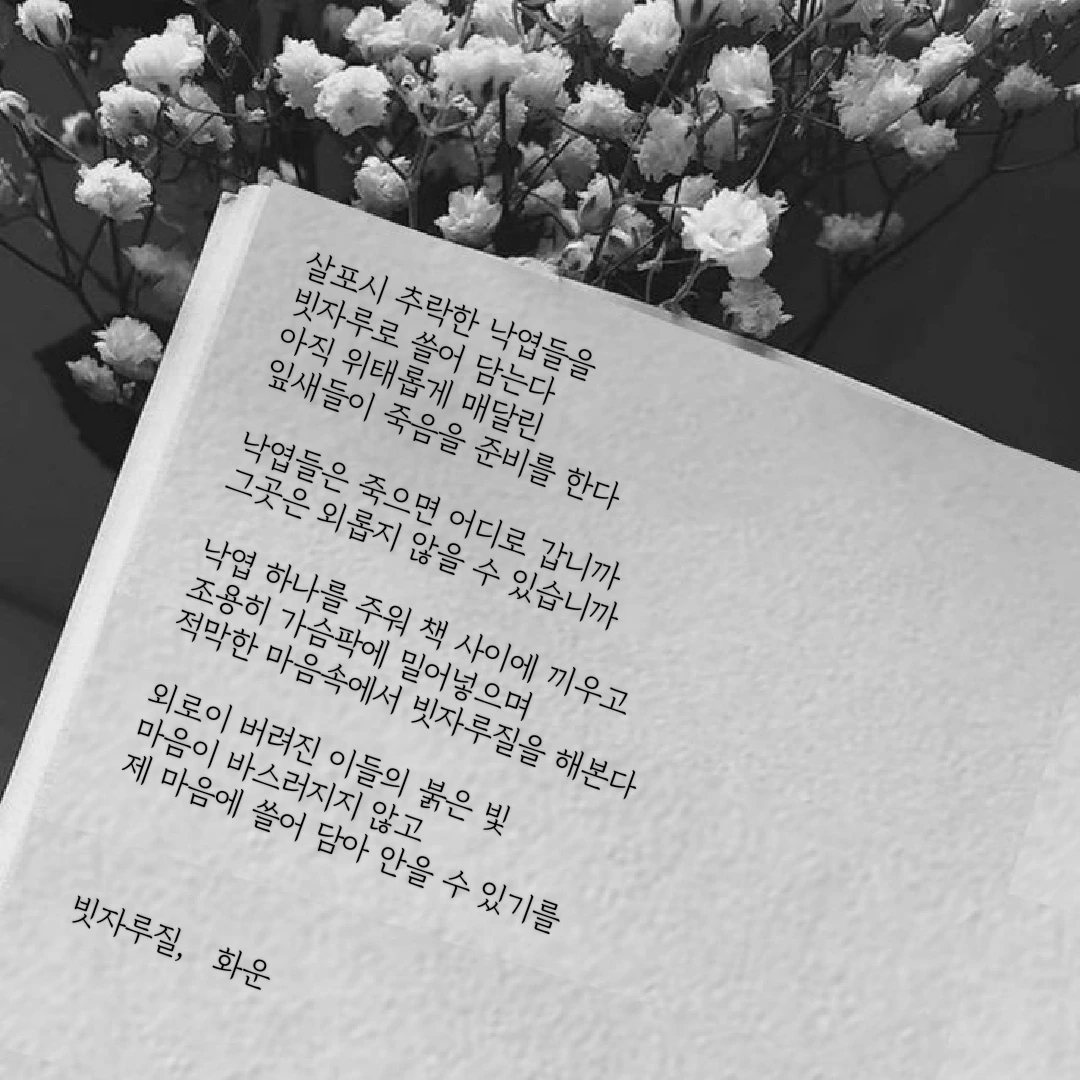 살포시 추락한 낙엽들을
빗자루로 쓸어 담는다
아직 위태롭게 매달린
잎새들이 죽음을 준비를 한다
낙엽들은 죽으면 어디로 갑니까
그곳은 외롭지 않을 수 있습니까
낙엽 하나를 주워 책 사이에 끼우고
조용히 가슴팍에 밀어넣으며
적막한 마음속에서 빗자루질을 해본다
외로이 버려진 이들의 붉은 빛
마음이 바스러지지 않고
제 마음에 쓸어 담아 안을 수 있기를
빗자루질, 화운